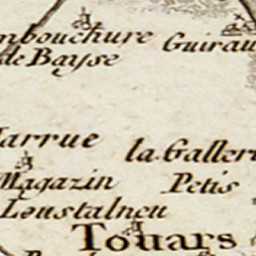 mbouchure
de Bayse
Guirau
larrue
la Galleri
Magazin
Petis
Loustalneu
Touars